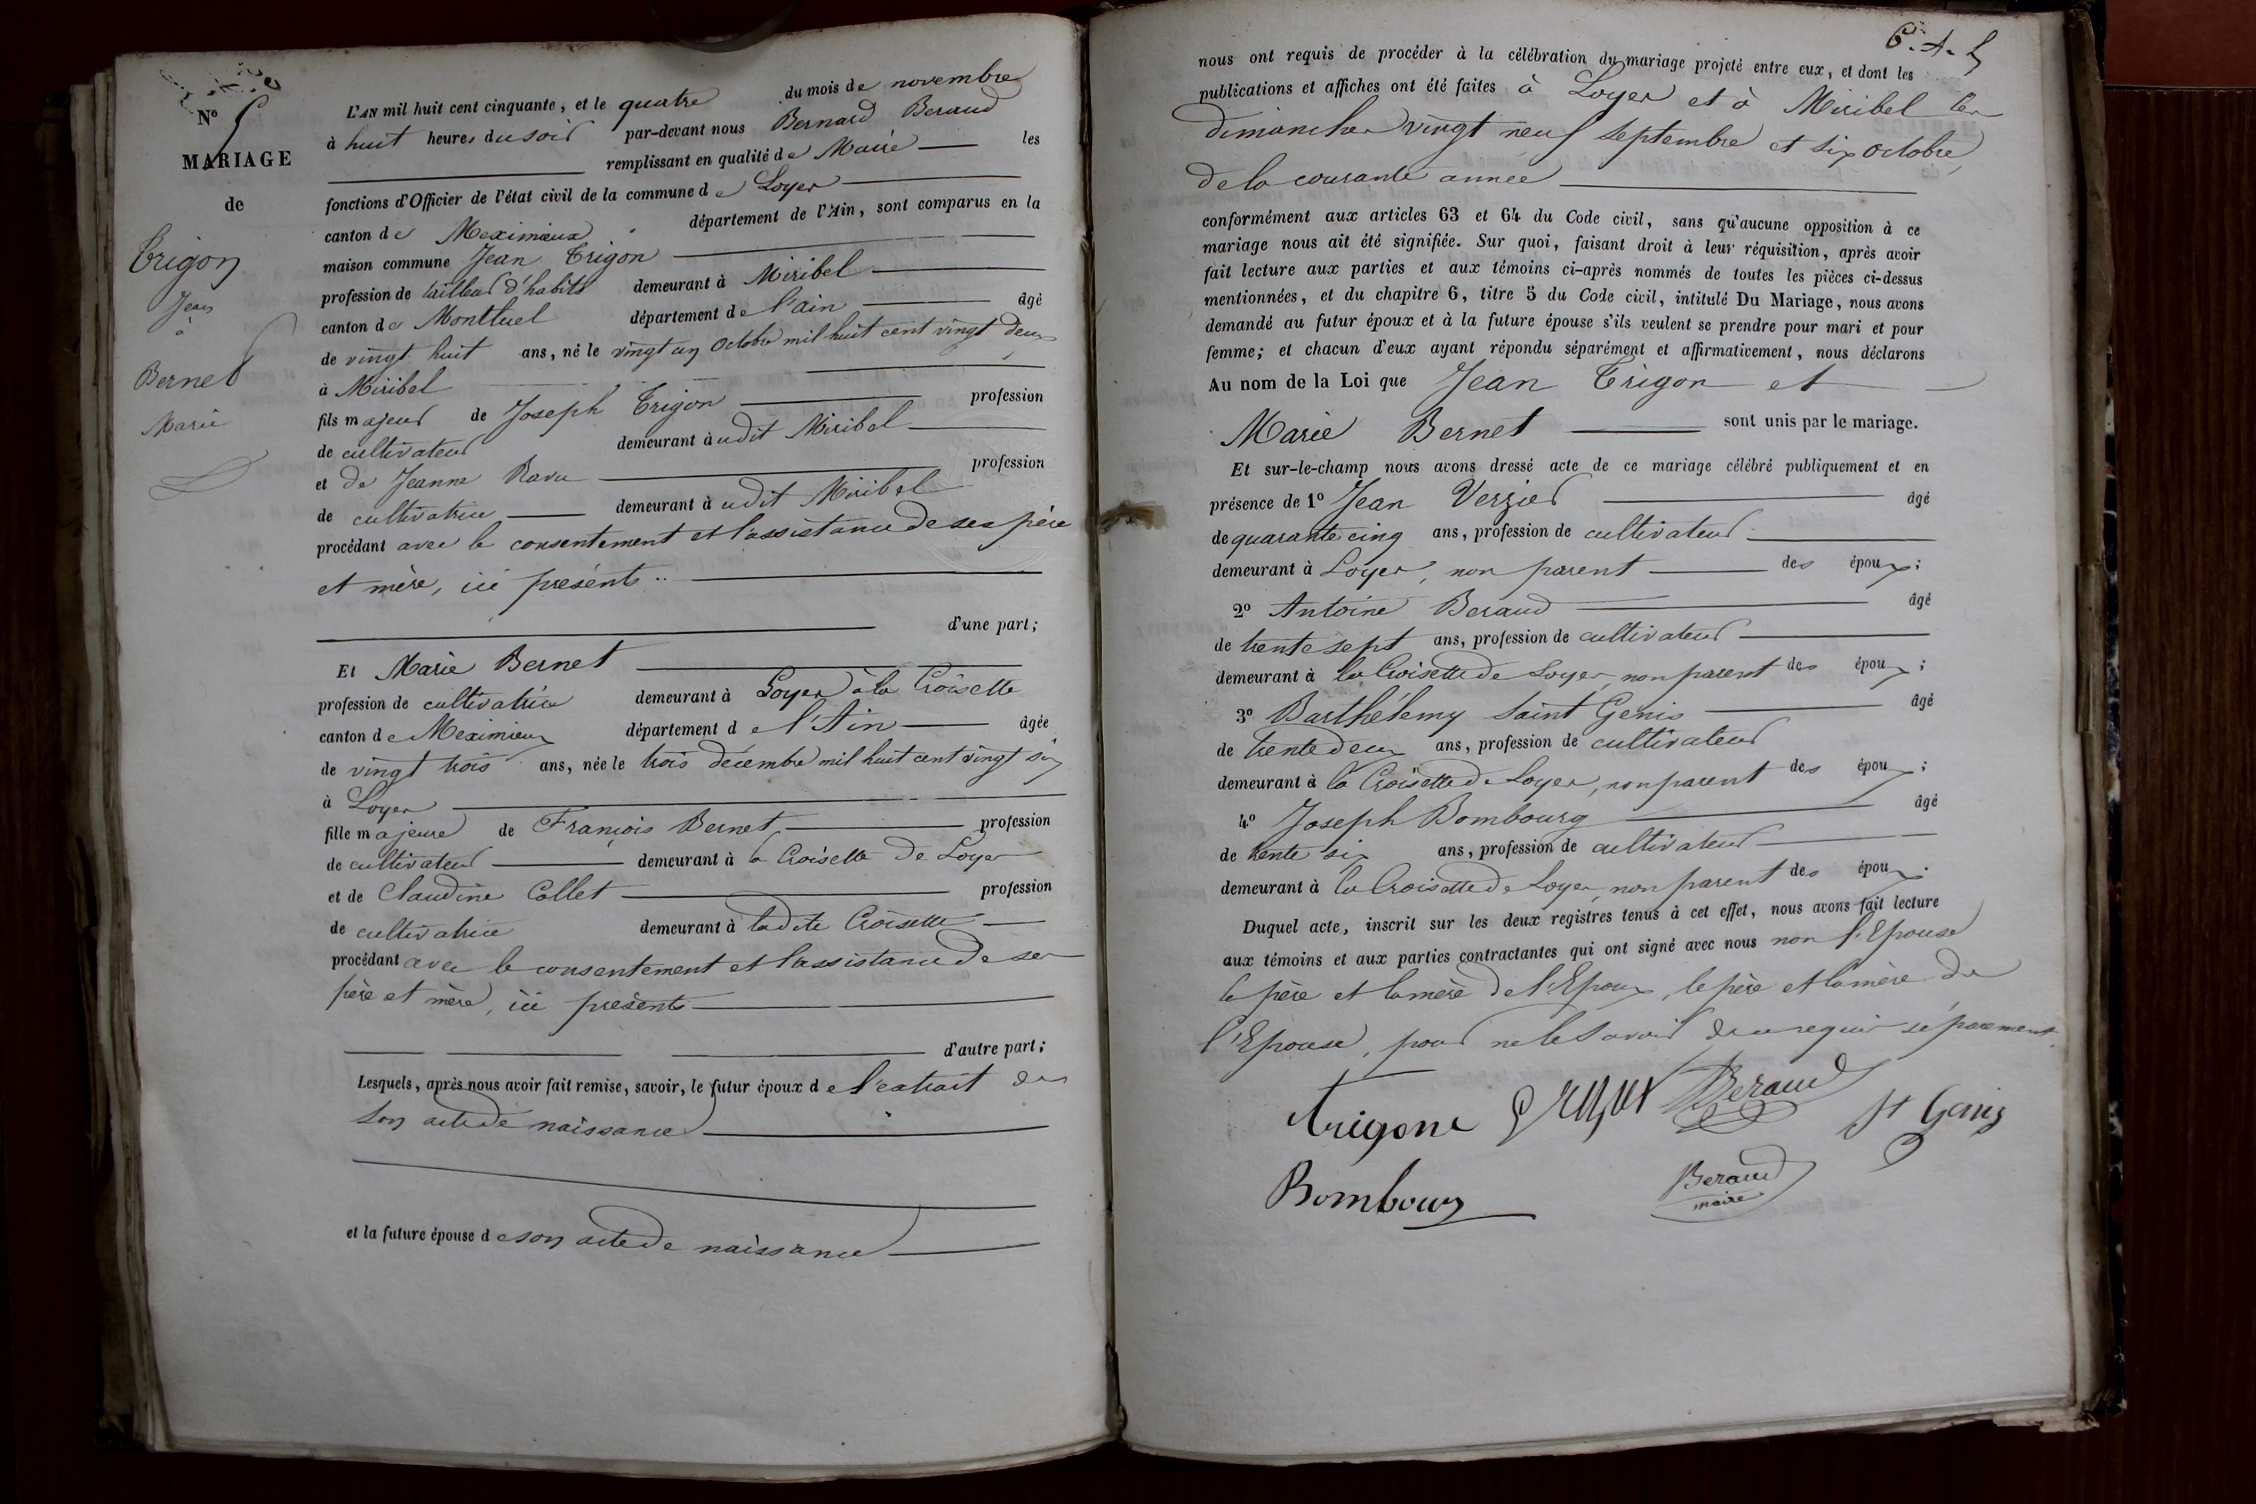 N° 5
MARIAGE
de
Trigon
Jean
à
Bernet
Marie
L'AN mil huit cent cinquante, et le quatre du mois de novembre
à huit heures du soir par-devant nous Bernard Beraud
remplissant en qualité de Maire les
fonctions d'Officier de l'état civil de la commune de Loyes
canton de Meximieux département de l'Ain, sont comparus en la
maison commune Jean Trigon
profession de tailleur d'habits demeurant à Miribel
canton de Montluel département de l'ain âgé
de vingt huit ans, né le vingt un octobre mil huit cent vingt deux
à Miribel
fils majeur de Joseph Trigon profession
de cultivateur demeurant à udit Miribel
et de Jeanne Ravu profession
de cultivatrice demeurant à udit Miribel
procédant avec le consentement et l'assistance de ses père
et mère, ici présents
d'une part;
Et Marie Bernet
profession de cultivatrice demeurant à Loyes à la Croisette
canton de Meximieux département de l'Ain âgée
de vingt trois ans, née le trois décembre mil huit cent vingt six
à Loyes
fille majeure de François Bernet profession
de cultivateur demeurant à la Croisette de Loyes
et de Claudine Collet profession
de cultivatrice demeurant à ladite Croisette
procédant avec le consentement et l'assistance de ses
père et mère, ici présents
d'autre part;
Lesquels, après nous avoir fait remise, savoir, le futur époux de l'extrait de
son acte de naissance
et la future épouse de son acte de naissance
nous ont requis de procéder à la célébration du mariage projeté entre eux, et dont les
publications et affiches ont été faites à Loyes et à Miribel les
dimanches vingt neuf septembre et six octobre
de la courante année
conformément aux articles 63 et 64 du Code civil, sans qu'aucune opposition à ce
mariage nous ait été signifiée. Sur quoi, faisant droit à leur réquisition, après avoir
fait lecture aux parties et aux témoins ci-après nommés de toutes les pièces ci-dessus
mentionnées, et du chapitre 6, titre 5 du Code civil, intitulé Du Mariage, nous avons
demandé au futur époux et à la future épouse s'ils veulent se prendre pour mari et pour
femme; et chacun d'eux ayant répondu séparément et affirmativement, nous déclarons
Au nom de la Loi que Jean Trigon et
Marie Bernet sont unis par le mariage.
Et sur-le-champ nous avons dressé acte de ce mariage célébré publiquement et en
présence de 1° Jean Verzier âgé
de quarante cinq ans, profession de cultivateur
demeurant à Loyes, non parent des époux;
2° Antoine Beraud âgé
de trente sept ans, profession de cultivateur
demeurant à la Croisette de Loyes, non parent des époux;
3° Barthélemy Saint Genis âgé
de trente deux ans, profession de cultivateur
demeurant à la Croisette de Loyes, non parent des époux;
4° Joseph Bombourg âgé
de trente six ans, profession de cultivateur
demeurant à la Croisette de Loyes, non parent des époux.
Duquel acte, inscrit sur les deux registres tenus à cet effet, nous avons fait lecture
aux témoins et aux parties contractantes qui ont signé avec nous non l'Epouse
le père et la mère de l'Epoux, le père et la mère de
l'Epouse, pour ne le savoir de ce requis séparément.
trigone Beraud St Genis
Bombourg Beraud
maire